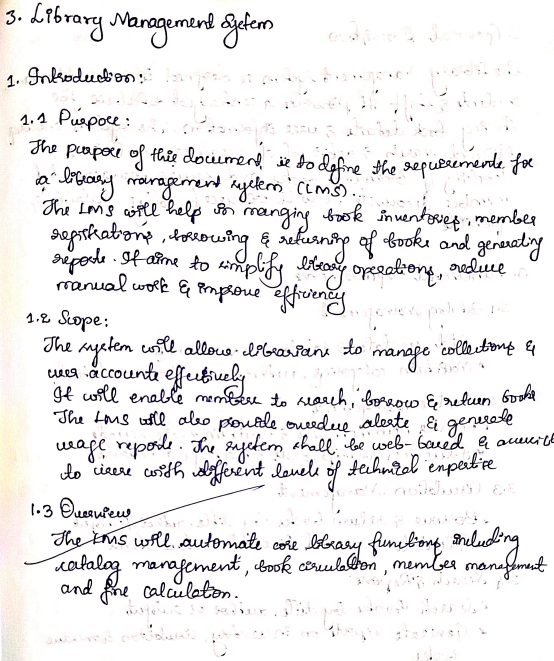 3. Library Management System
1. Introduction:
1.1 Purpose:
The purpose of this document is to define the requirements for
a library management system (LMS).
The LMS will help in manging book inventories, member
registrations, borrowing & returning of books and generating
reports. It aims to simplify library operations, reduce
manual work & improve efficiency
1.2 Scope:
The system will allow librarians to manage collections &
user accounts effectively
It will enable members to search, borrow & return books
The LMS will also provide overdue alerts & generate
usage reports. The system shall be web-based &
to users with different levels of technical expertise
1.3 Overview
The LMS will automate core library functions including
catalog management, book circulation, member management
and fine calculation.